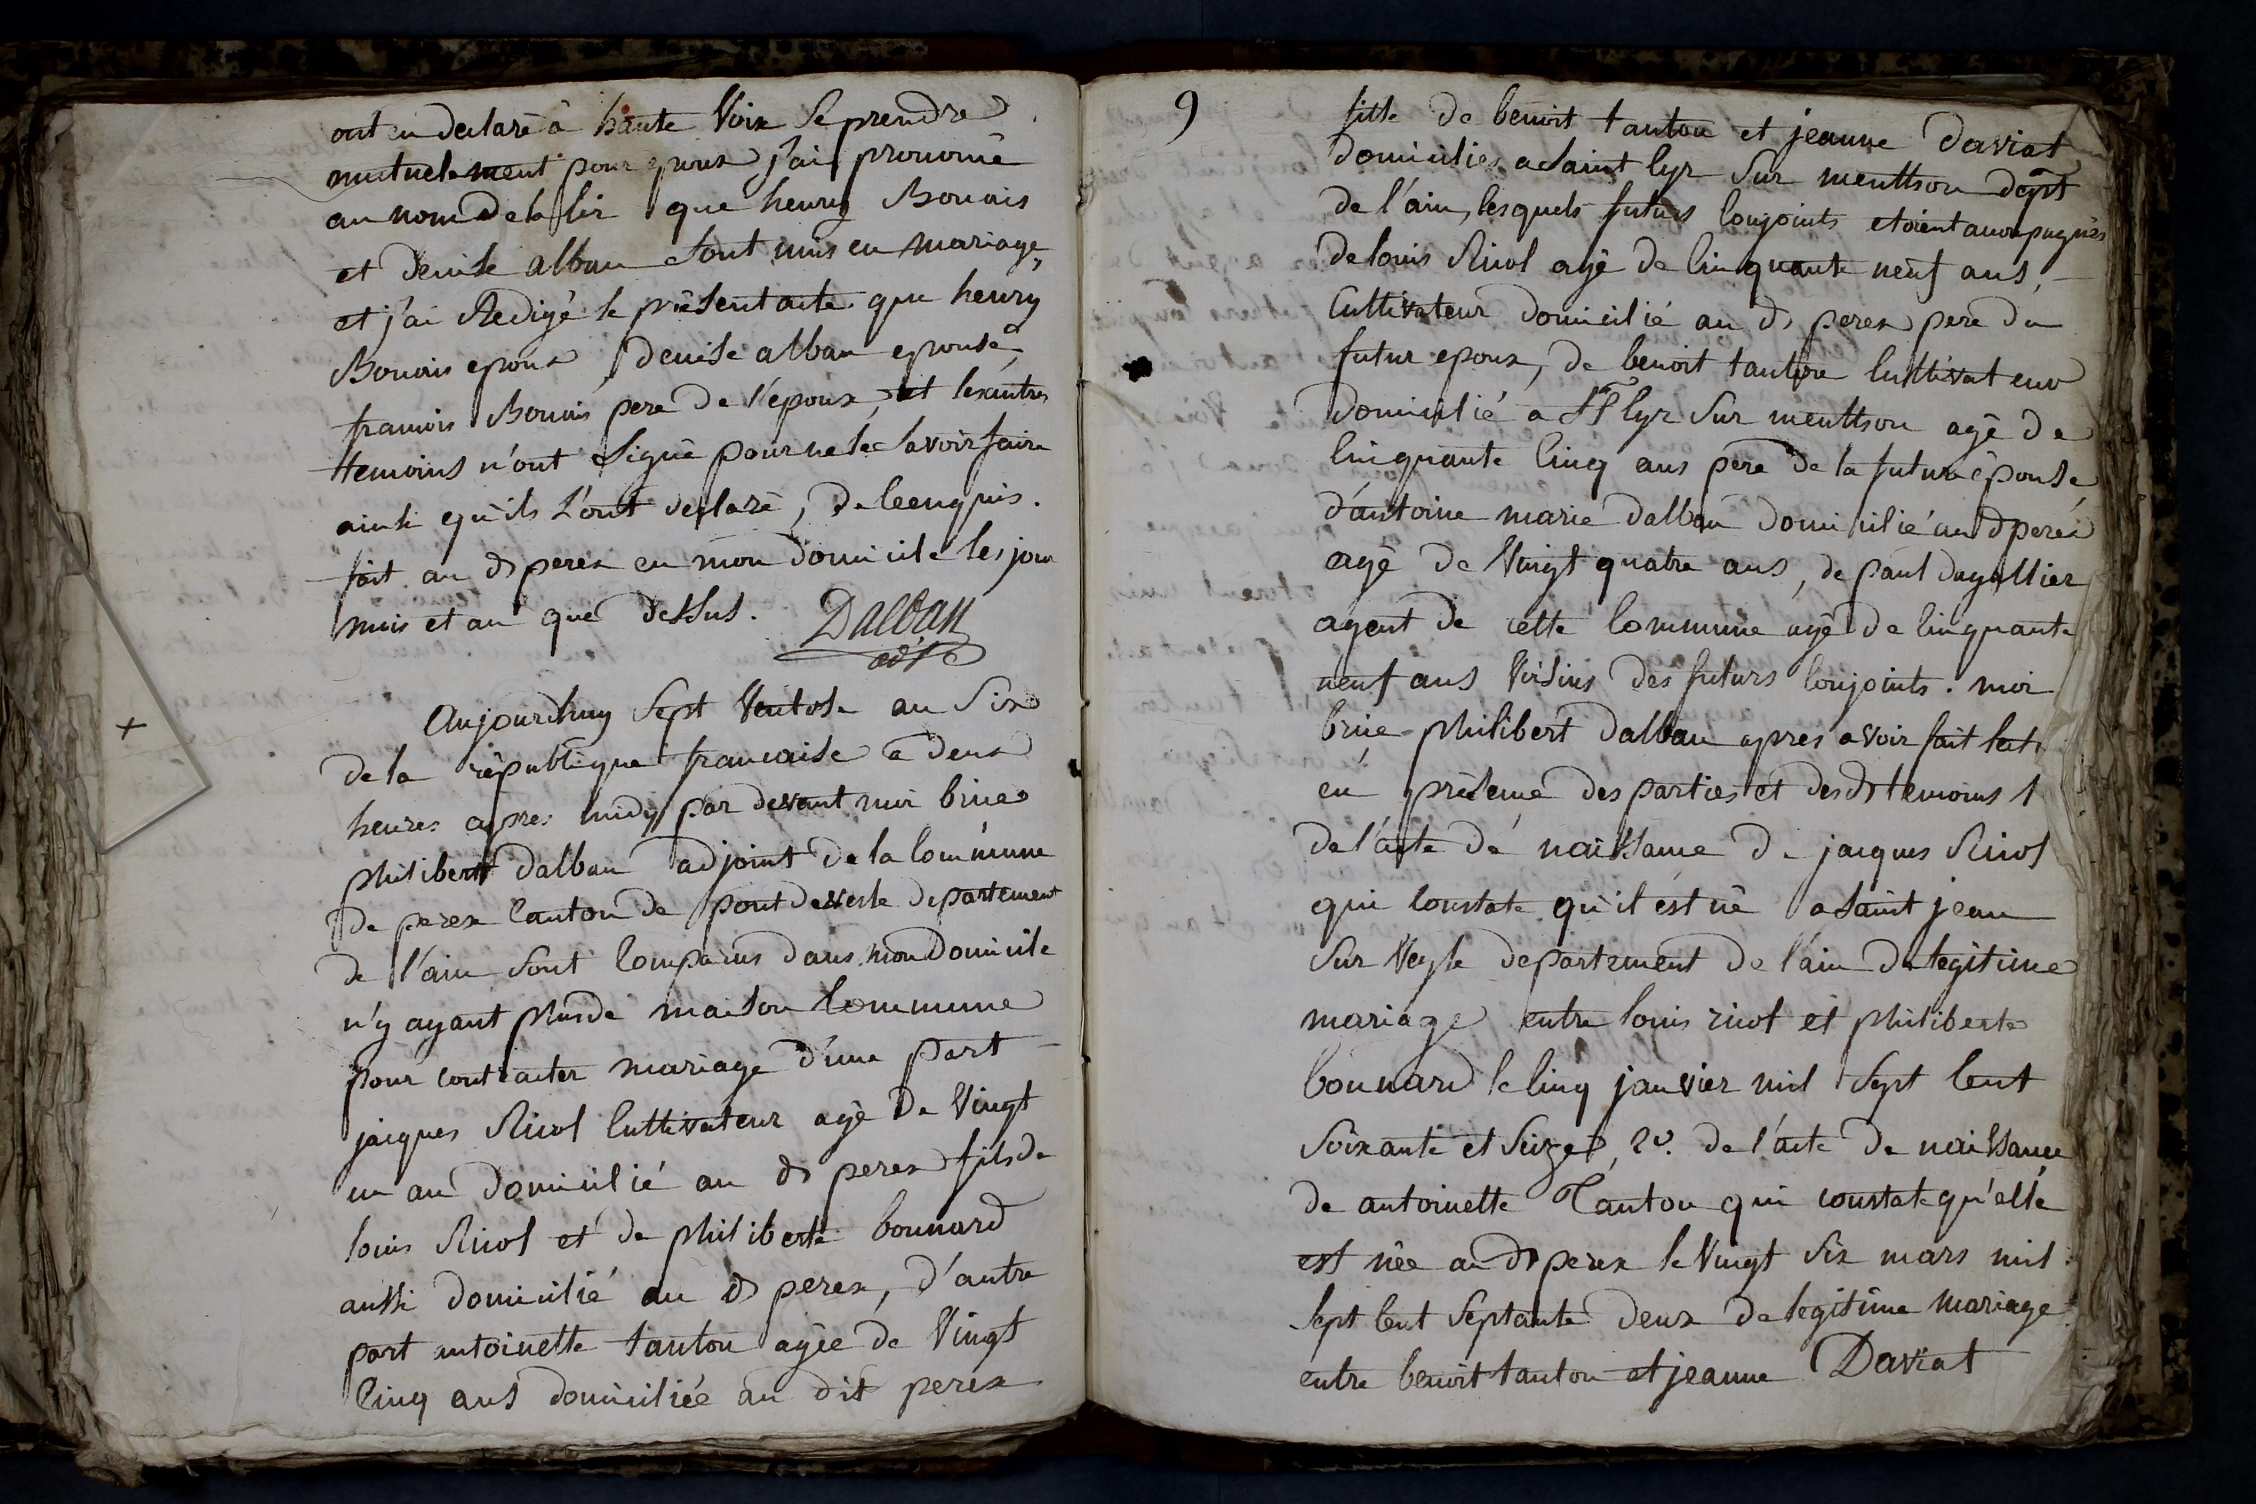 ont en declaré à haute Voix Se prendre
mutuelement pour epoux, j'ai prononcé
au nom de la loi que henry Bonnais
et denise alban Sont unis en mariage,
et j'ai Redigé le présent acte que henry
Bonnais epoux, denise alban epouse,
francois Bonnais pere de l'époux, et les autres
temoins n'ont Signé pour ne le Savoir faire
ainsi qu'ils L'ont declaré, de ce enquis.
fait au dt perex en mon domicile les jour
mois et an que dessus. Dalban
adjt
Aujourdhuy Sept Ventose an Six
de la république francaise a deux
heures apres midy par devant moi brice
philibert dalban adjoint de la commune
de perex Canton de pont de vesle departement
de l'ain Sont Comparus dans mon domicile
n'y ayant plus de maison Commune
pour contracter mariage d'une part
jacques Ricol Cultivateur agé de Vingt
un an domicilié au dt perex fils de
louis Ricol et de philiberte bonnard
aussi domicilié au dt perex, d'autre
part antoinette tanton agée de Vingt
Cinq ans domiciliée au dit perex
9
fille de benoit tanton et jeanne daviat
domiciliés a Saint Cyr Sur menthon dept
de l'ain, lesquels futurs Conjoints etoient accompagnés
de louis Ricol agé de Cinquante neuf ans,
Cultivateur domicilié au dt perex pere du
futur epoux, de benoit tanton Cultivateur
domicilié a St Cyr Sur menthon agé de
Cinquante Cinq ans pere de la future épouse
d'antoine marie dalban domicilié au dt perex
agé de Vingt quatre ans, de paul dagallier
agent de cette Commune agé de Cinquante
neuf ans Voisins des futurs Conjoints. moi
brice philibert dalban apres avoir fait lect
en présence des parties et des dt temoins 1
de l'acte de naissance de jacques Ricol
qui Constate qu'il est né a Saint jean
Sur Veyle departement de l'ain de legitime
mariage entre louis ricol et philiberte
bonnard le Cinq janvier mil Sept Cent
Soixante et Seize, 2o. de l'acte de naissance
de antoinette Tanton qui constate qu'elle
est née au dt perex le Vingt Six mars mil
Sept Cent Septante deux de legitime mariage
entre benoit tanton et jeanne Daviat